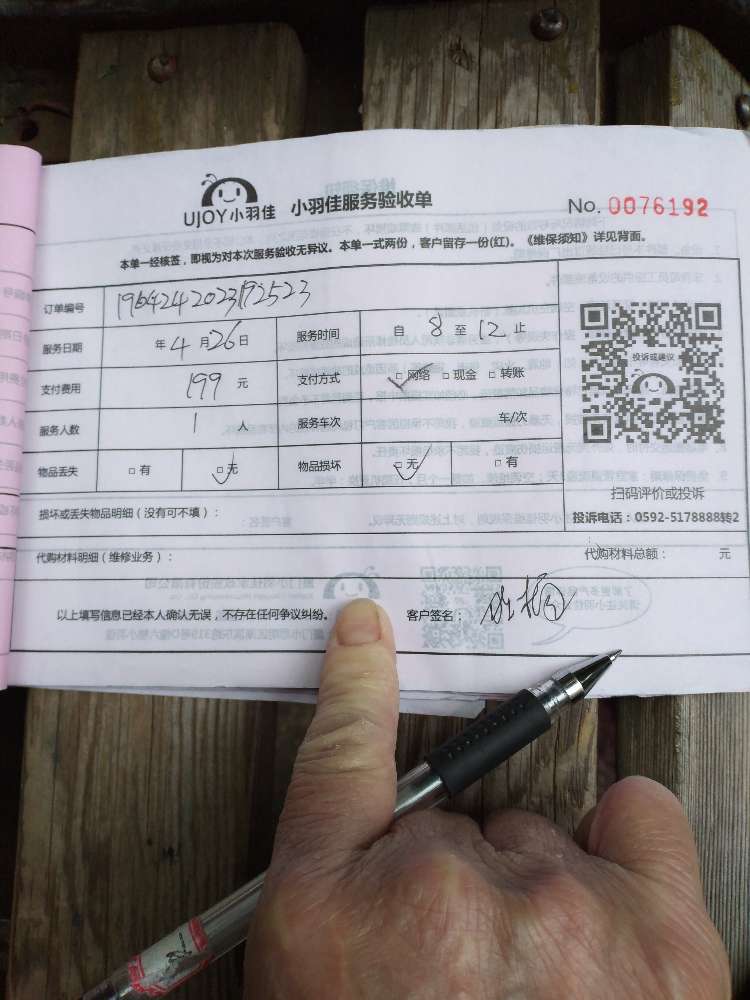 UJOY小羽佳 小羽佳服务验收单 No. 0076192
本单一经核签，即视为对本次服务验收无异议。本单一式两份，客户留存一份(红)。《维保须知》详见背面。
订单编号
服务日期 年4月26日 服务时间 自8至12止
支付费用 199元 支付方式 □网络 □现金 □转账
服务人数 1人 服务车次 车/次
物品丢失 □有 □无 物品损坏 □无 □有
投诉或建议
扫码评价或投诉
损坏或丢失物品明细（没有可不填）：
投诉电话：0592-5178888转2
代购材料明细（维修业务）： 代购材料总额： 元
以上填写信息已经本人确认无误，不存在任何争议纠纷。 客户签名：